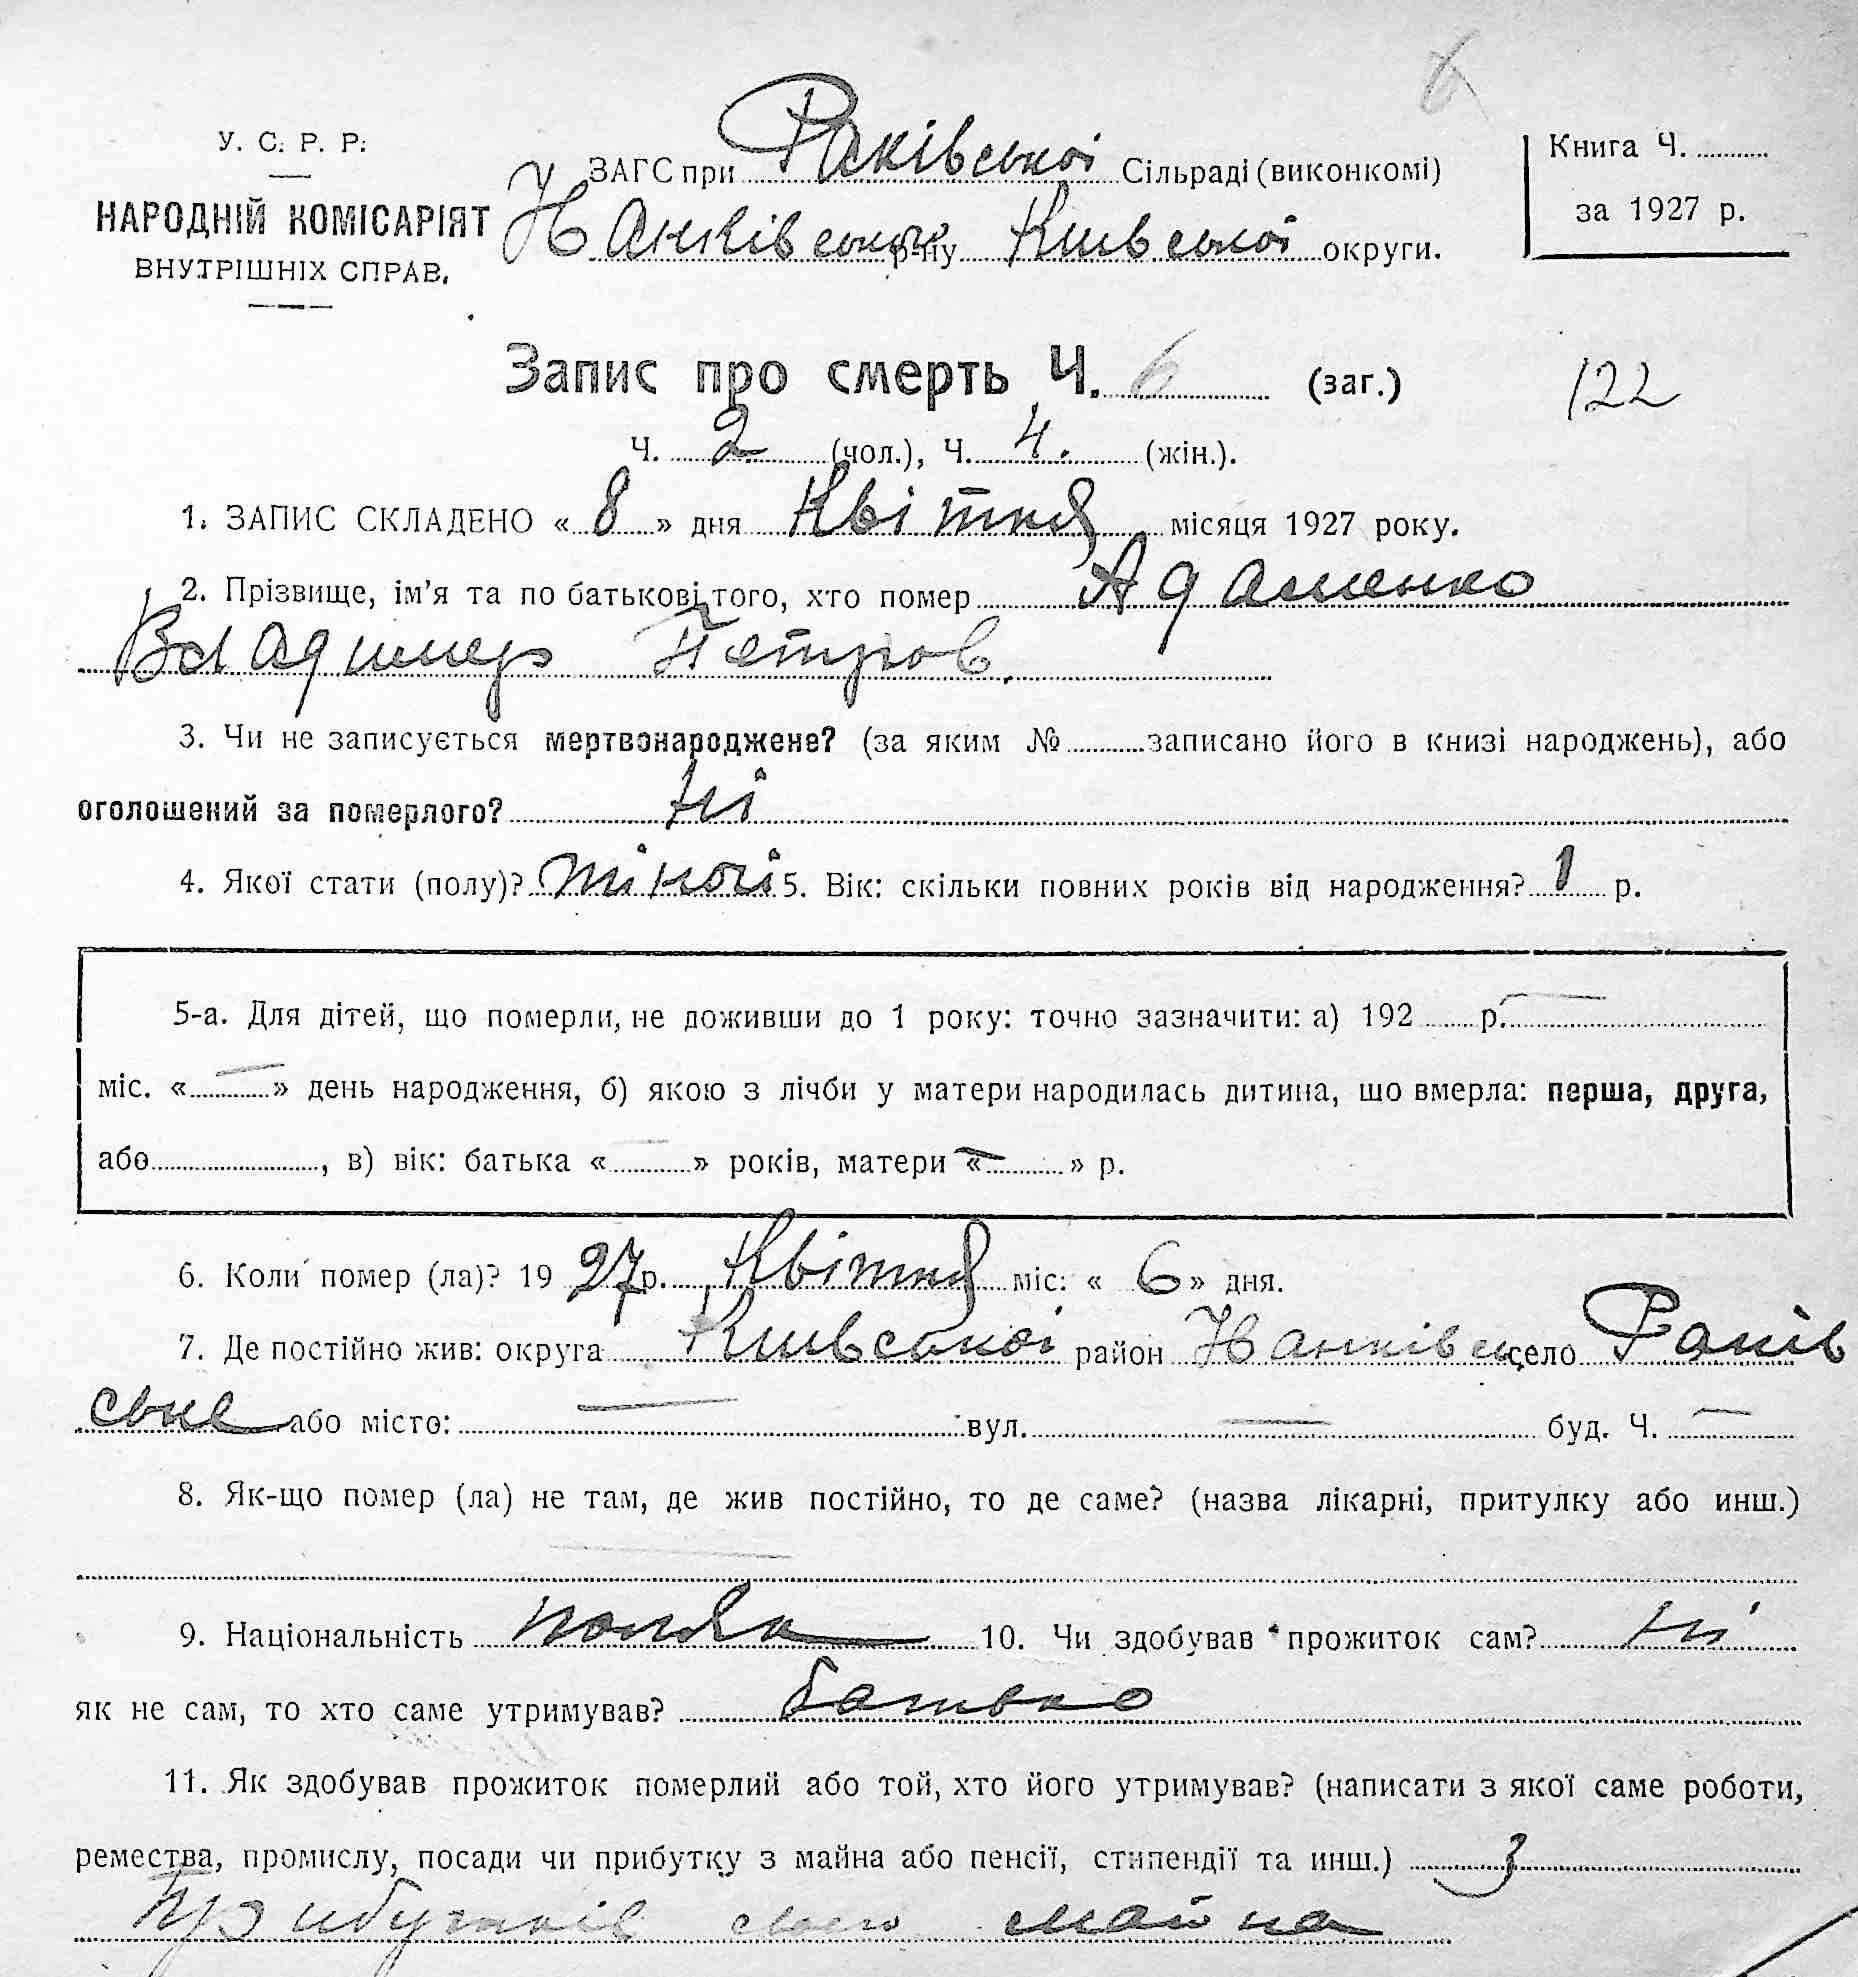 У. С. Р. Р.
НАРОДНІЙ КОМІСАРІЯТ
ВНУТРІШНІХ СПРАВ.
ЗАГС при Раківської Сільраді (виконкомі)
р-ну Київської округи.
Книга Ч.
за 1927 р.
Запис про смерть Ч. 6 (заг.)
122
Ч. 2 (чол.), Ч. 4. (жін.).
1. ЗАПИС СКЛАДЕНО « 8 » дня Квітня місяця 1927 року.
2. Прізвище, ім'я та по батькові того, хто помер Адаменко
Владимер Петров.
3. Чи не записується мертвонароджене? (за яким № записано його в книзі народжень), або
оголошений за померлого? ні
4. Якої стати (полу)? 5. Вік: скільки повних років від народження? 1 р.
5-а. Для дітей, що померли, не доживши до 1 року: точно зазначити: а) 192 р. —
міс. « — » день народження, б) якою з лічби у матери народилась дитина, що вмерла: перша, друга,
або , в) вік: батька « — » років, матери « — » р.
6. Коли помер (ла)? 19 27 р. Квітня міс: « 6 » дня.
7. Де постійно жив: округа Київської район село Раків
ське або місто: — вул. — буд. Ч. —
8. Як-що помер (ла) не там, де жив постійно, то де саме? (назва лікарні, притулку або инш.)
—
9. Національність поляк 10. Чи здобував прожиток сам? ні
як не сам, то хто саме утримував? батько
11. Як здобував прожиток померлий або той, хто його утримував? (написати з якої саме роботи,
ремества, промислу, посади чи прибутку з майна або пенсії, стипендії та инш.) З
прибутків свого майна